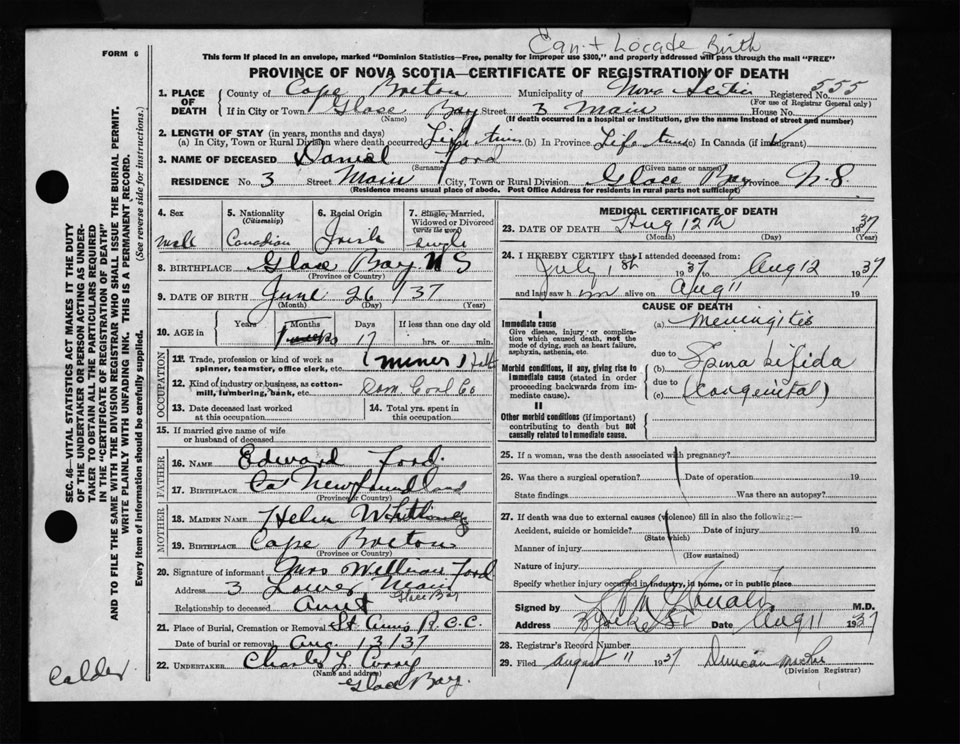 Can.t Locate Birth
FORM 6
This form if placed in an envelope, marked "Dominion Statistics—Free, penalty for improper use $300," and properly addressed will pass through the mail "FREE"
PROVINCE OF NOVA SCOTIA—CERTIFICATE OF REGISTRATION OF DEATH
1. PLACE OF DEATH County of Cape Breton Municipality of Nova Scotia Registered No. 555
(For use of Registrar General only)
If in City or Town Glace Bay Street 3 Main House No.
(Name) (If death occurred in a hospital or institution, give the name instead of street and number)
2. LENGTH OF STAY (in years, months and days)
(a) In City, Town or Rural Division where death occurred Life time (b) In Province Life time (c) In Canada (if immigrant)
3. NAME OF DECEASED Daniel Ford
(Surname) (Given name or names)
RESIDENCE No. 3 Street Main City, Town or Rural Division Glace Bay Province N.S
(Residence means usual place of abode. Post Office Address for residents in rural parts not sufficient)
4. Sex male
5. Nationality (Citizenship) Canadian
6. Racial Origin Irish
7. Single, Married, Widowed or Divorced (write the word) single
8. BIRTHPLACE Glace Bay N S
(Province or Country)
9. DATE OF BIRTH June 26 1937
(Month) (Day) (Year)
10. AGE in Years Months Days If less than one day old
17 hrs. or min.
OCCUPATION
11. Trade, profession or kind of work as spinner, teamster, office clerk, etc. (miner)
12. Kind of industry or business, as cotton-mill, lumbering, bank, etc. Dom. Coal Co
13. Date deceased last worked at this occupation
14. Total yrs. spent in this occupation
15. If married give name of wife or husband of deceased
FATHER
16. NAME Edward Ford.
17. BIRTHPLACE Newfoundland
(Province or Country)
MOTHER
18. MAIDEN NAME Helen
19. BIRTHPLACE Cape Breton
(Province or Country)
20. Signature of informant Mrs William Ford
Address 3 Lower Main Glace Bay
Relationship to deceased aunt
21. Place of Burial, Cremation or Removal St. Anns R.C.C.
Date of burial or removal Aug 13/37
22. UNDERTAKER Charles L. Curry
(Name and address)
Glace Bay.
MEDICAL CERTIFICATE OF DEATH
23. DATE OF DEATH Aug 12th 1937
(Month) (Day) (Year)
24. I HEREBY CERTIFY that I attended deceased from:
July 1st 1937 to Aug 12 1937
and last saw him alive on Aug 11 19
CAUSE OF DEATH
I
Immediate cause
Give disease, injury or complication which caused death, not the mode of dying, such as heart failure, asphyxia, asthenia, etc.
(a) Meningitis
due to
Morbid conditions, if any, giving rise to immediate cause (stated in order proceeding backwards from immediate cause).
(b) Spina bifida
due to
(c) (Congenital)
II
Other morbid conditions (if important) contributing to death but not causally related to immediate cause.
25. If a woman, was the death associated with pregnancy?
26. Was there a surgical operation? Date of operation 19
State findings Was there an autopsy?
27. If death was due to external causes (violence) fill in also the following:—
Accident, suicide or homicide? Date of injury 19
(State which)
Manner of injury
(How sustained)
Nature of injury
Specify whether injury occurred in industry, in home, or in public place
Signed by M.D.
Address Date Aug 11 1937
28. Registrar's Record Number
29. Filed August 11 1937 Duncan
(Division Registrar)
SEC. 46—VITAL STATISTICS ACT MAKES IT THE DUTY OF THE UNDERTAKER OR PERSON ACTING AS UNDERTAKER TO OBTAIN ALL THE PARTICULARS REQUIRED IN THE "CERTIFICATE OF REGISTRATION OF DEATH" AND TO FILE THE SAME WITH THE DIVISION REGISTRAR WHO SHALL ISSUE THE BURIAL PERMIT.
WRITE PLAINLY WITH UNFADING INK. THIS IS A PERMANENT RECORD.
Every item of information should be carefully supplied. (See reverse side for instructions.)
Calder.